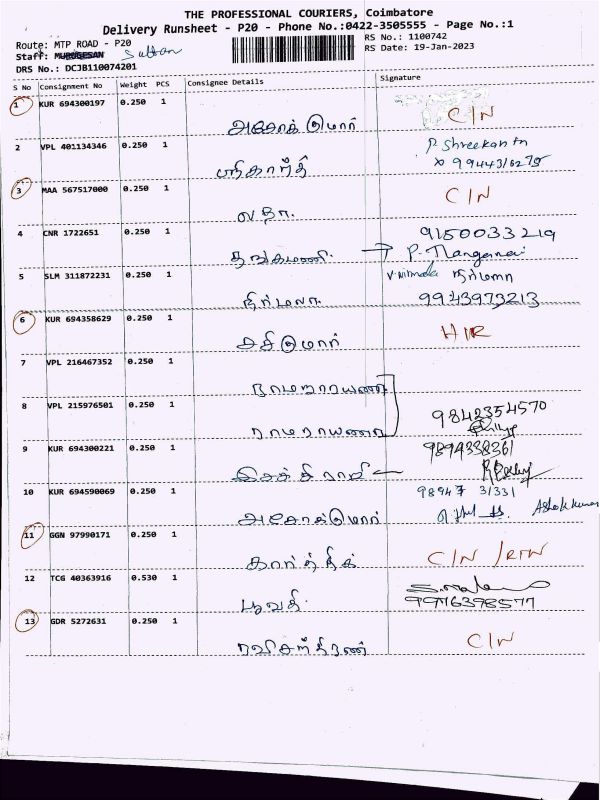 THE PROFESSIONAL COURIERS, Coimbatore
Delivery Runsheet - P20 - Phone No.:0422-3505555 - Page No.:1
Route: MTP ROAD - P20
RS No.: 1100742
Staff: MURUGESAN Sultan
RS Date: 19-Jan-2023
DRS No.: DCJB110074201
S No Consignment No Weight PCS Consignee Details Signature
1 KUR 694300197 0.250 1 C/N
அசோக் குமார்
2 VPL 401134346 0.250 1 P. Shreekanth
ஸ்ரீகாந்த் 9944316275
3 MAA 567517000 0.250 1 C/N
லதா.
4 CNR 1722651 0.250 1 9150033219
தங்கமணி.
5 SLM 311872231 0.250 1 V. Nirmala நிர்மலா
நிர்மலா. 9943973213
6 KUR 694358629 0.250 1 H/R
சசி குமார்
7 VPL 216467352 0.250 1
ராமநாராயணன்
8 VPL 215976501 0.250 1 9842354570
ராமநாராயணன்
9 KUR 694300221 0.250 1 9894338361
10 KUR 694590069 0.250 1 98947 31331
அசோக்குமார் Ashok kumar
11 GGN 97990171 0.250 1 C/N /RTN
கார்த்திக்
12 TCG 40363916 0.530 1
பூவதி 9976398577
13 GDR 5272631 0.250 1 C/N
ரவிசந்திரன்